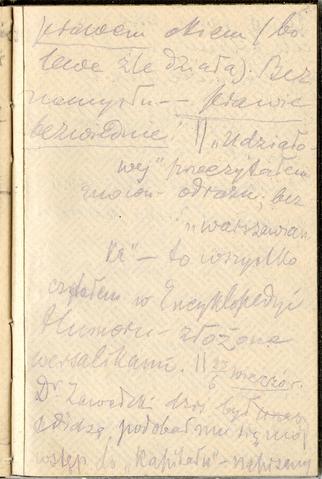 prawem okiem (bo
lewe źle działa). Bez
namysłu — prawie
bezwiednie! || „Udziało-
wej" przeczytałem
odrazu, bez
„warszawian
ka" — to wszystko
czytałem w Encyklopedyi
Humoru — złożone
wersalikami. || 22/6 wieczór.
Dr Zawadzki dziś był
podobał mu się mój
wstęp do „Kapitału" — napisany